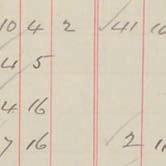 10 4 2 41 10
4 5
4 16
7 16 2 11